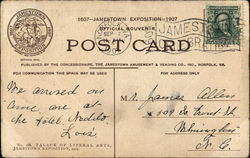 1607-JAMESTOWN EXPOSITION-1907
OFFICIAL SOUVENIR
POST CARD
PUBLISHED BY THE CONCESSIONAIRE, THE JAMESTOWN AMUSEMENT & VENDING CO., INC., NORFOLK, VA.
FOR COMMUNICATION THIS SPACE MAY BE USED
FOR ADDRESS ONLY
JAMESTOWN
We arrived on
time are at
the Hotel
Lois
Mr. James Allen
109 So Front St
Wilmington
N. C.
No. 168. PALACE OF LIBERAL ARTS,
JAMESTOWN EXPOSITION, 1907